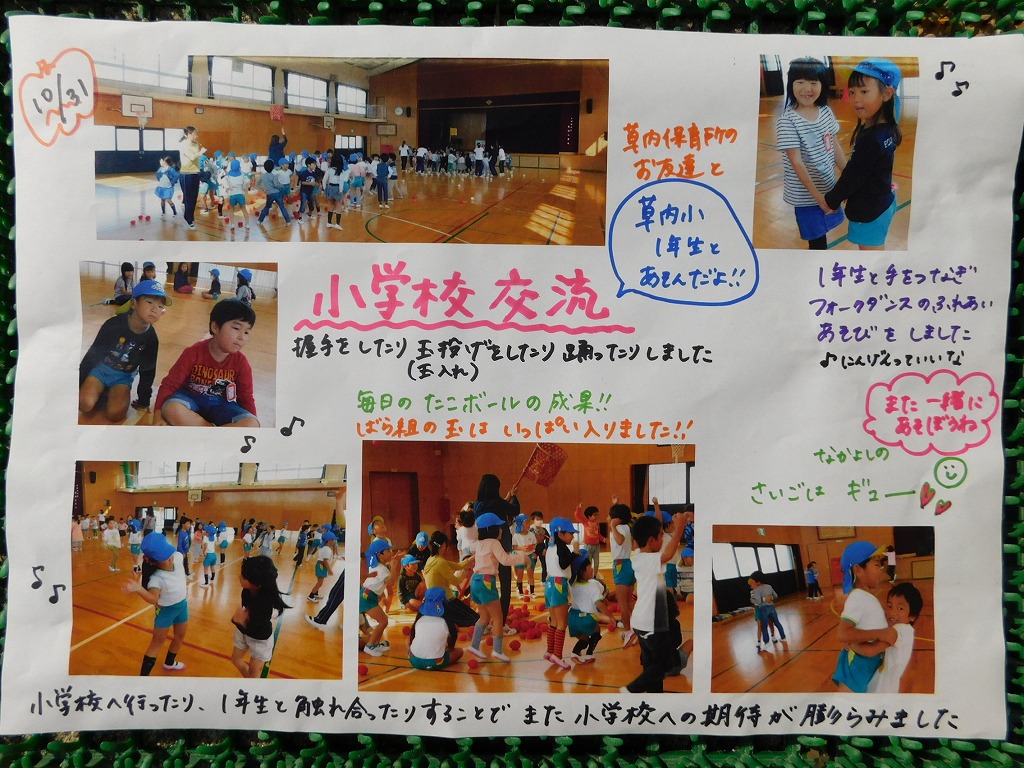 10/31
草内保育所の
お友達と
草内小
1年生と
あそんだよ!!
小学校交流
握手をしたり 玉投げをしたり 踊ったりしました
(玉入れ)
1年生と手をつなぎ
フォークダンスのふれあい
あそびをしました
♪にんげんっていいな
毎日の たこボールの成果!!
ばら組の玉は いっぱい入りました!!
また一緒に
あそぼうね
なかよしの
さいごは ギュー
DINOSAUR
小学校へ行ったり、1年生と触れ合ったりすることで また小学校への期待が膨らみました